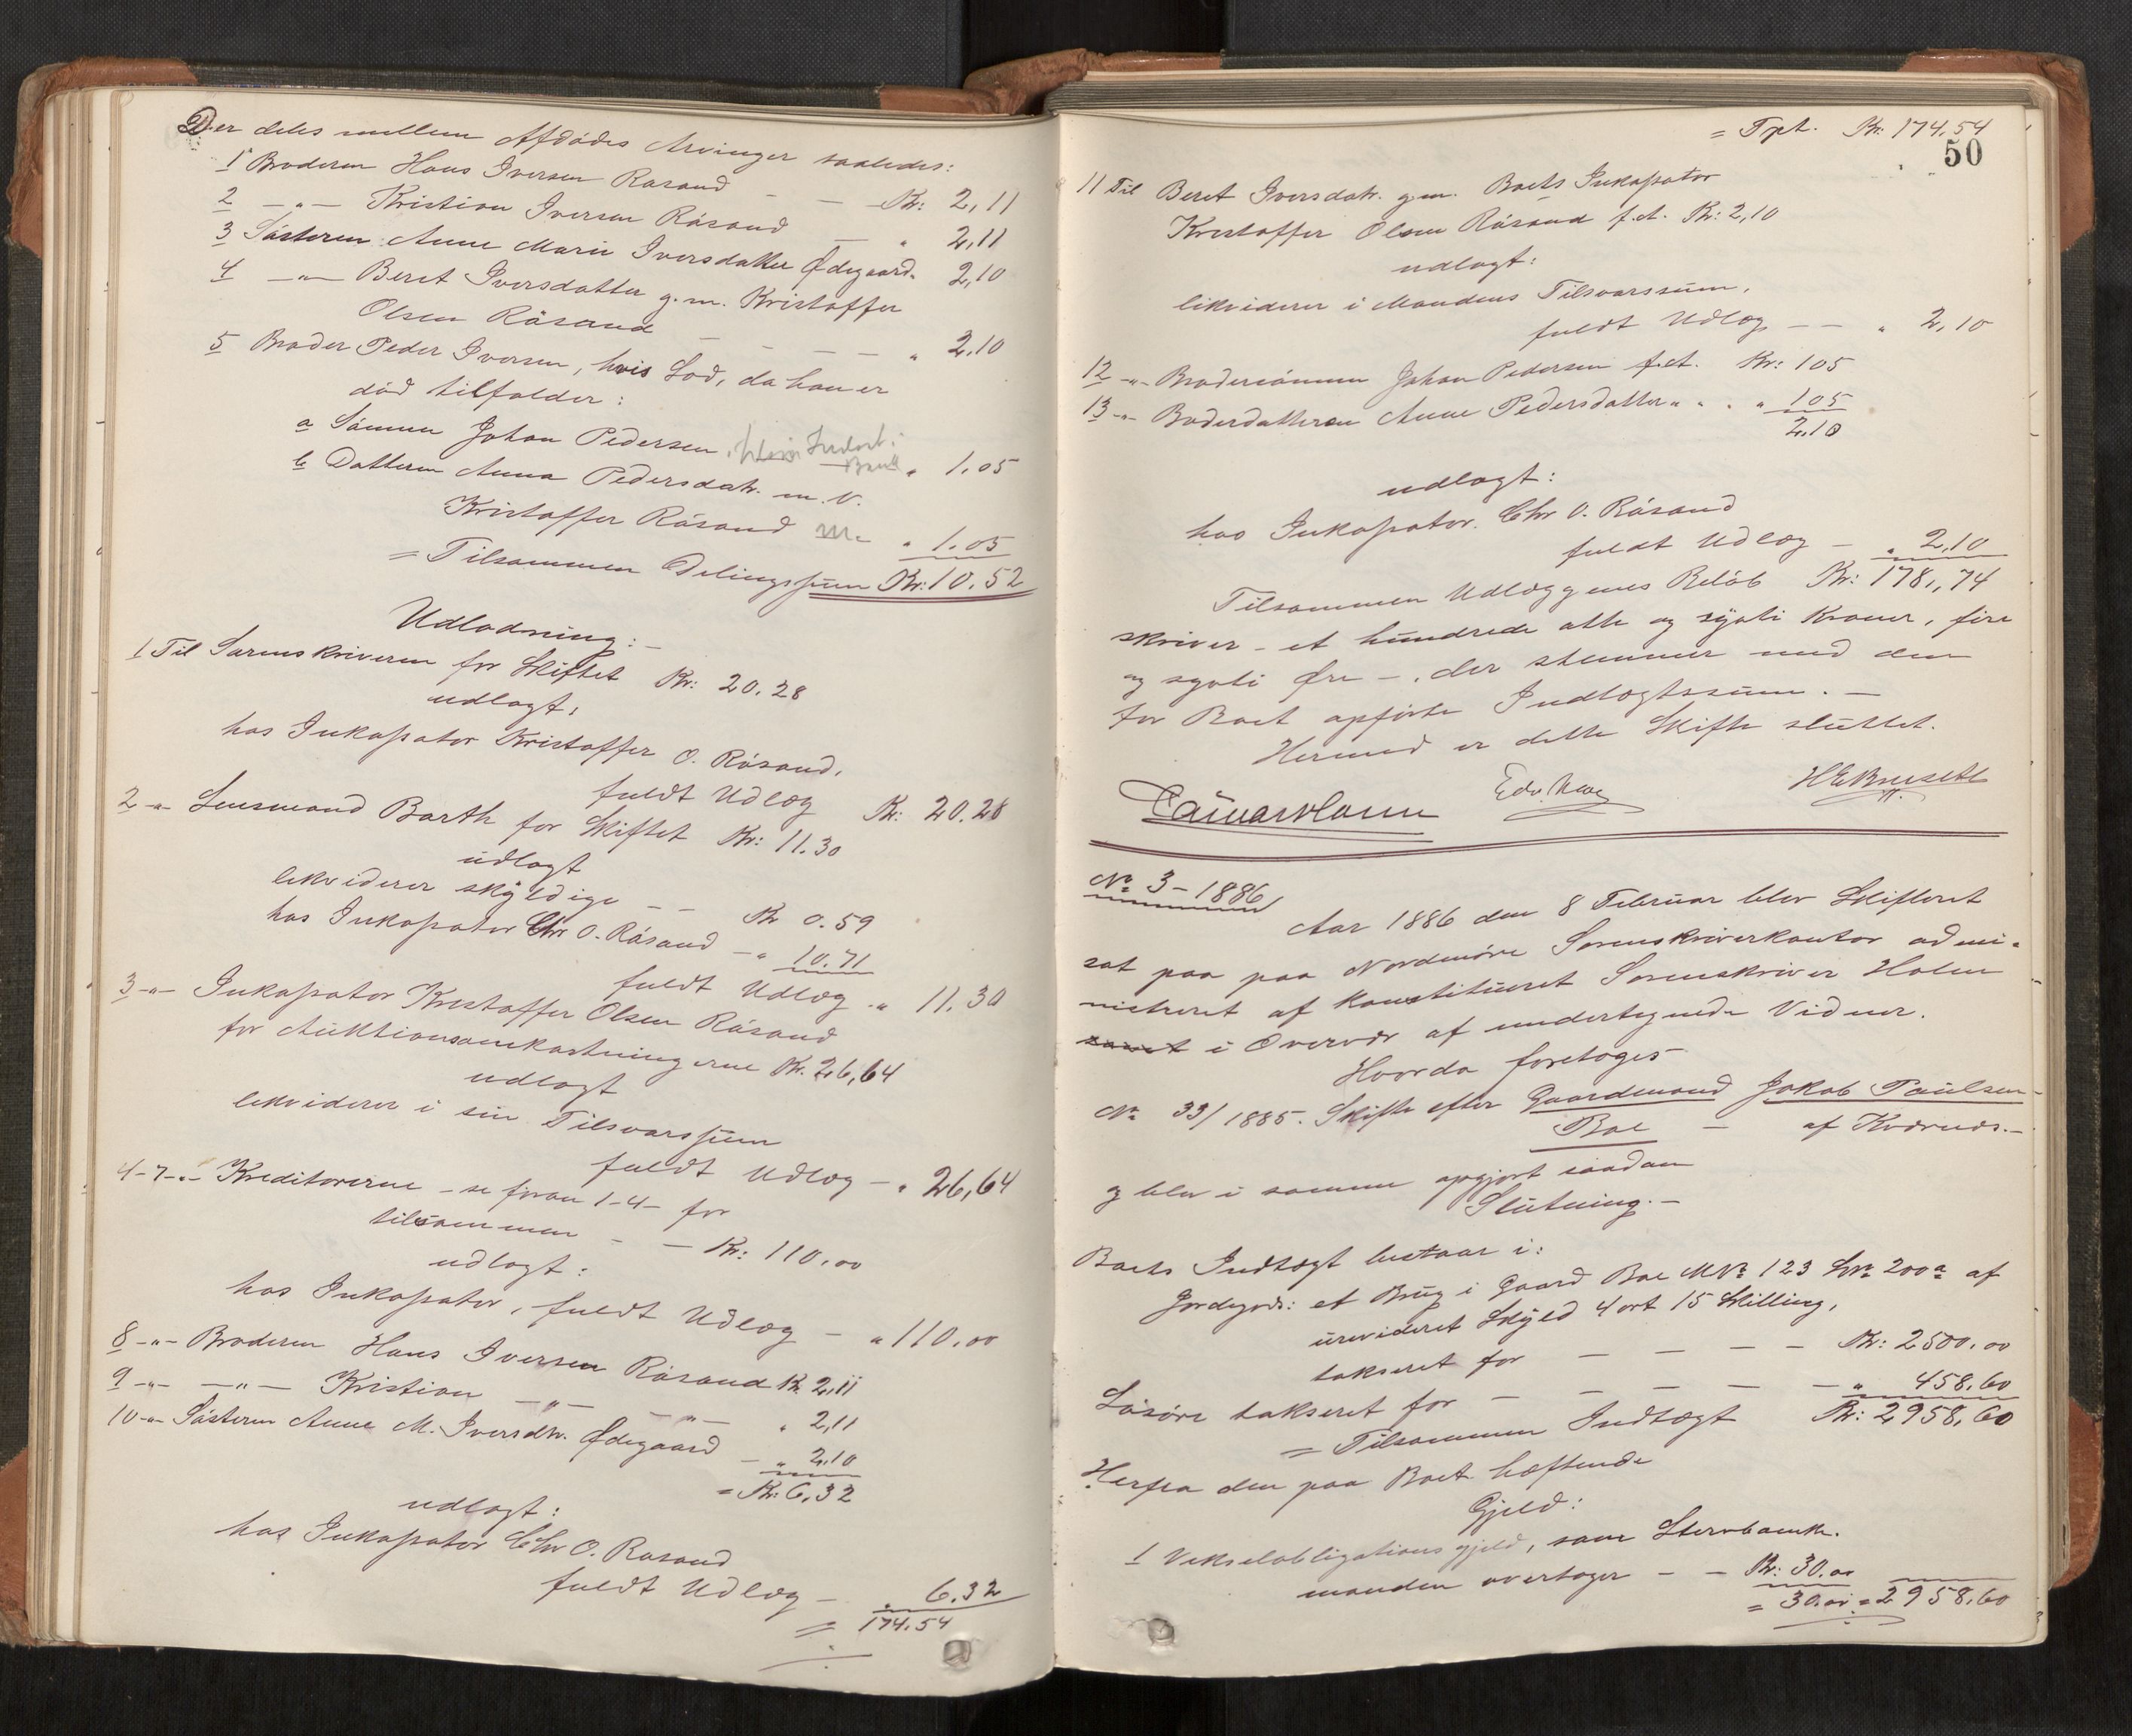 Der deles mellem Afdødes Arvinger saaledes:
1 Broderen Hans Iversen Rasand - - Kr: 2,11
2 -"- Kristian Iversen Råsand - " 2,11
3 Søsteren Anne Marie Iversdatter Ødegaard " 2,10
4 -"- Beret Iversdatter g.m. Kristoffer
Olsen Råsand - - - - " 2,10
5 Broder Peder Iversen, hvis Lod, da han er
død tilfalder:
a Sønnen Johan Pedersen " 1.05
b Datteren Anna Pedersdatr. m.V.
Kristoffer Råsand " 1.05
= Tilsammen Delingssum Kr: 10.52
Udlodning:-
1 Til Sorenskriveren for Skiftet Kr: 20.28
udlagt:
hos Inkassator Kristoffer O. Råsand,
fuldt Udlæg Kr: 20.28
2 -"- Lensmand Barth for Skiftet Kr: 11.30
udlagt
likviderer skyldige - - Kr 0.59
hos Inkassator Chr O. Råsand - " 10.71
fuldt Udlæg " 11.30
3 -"- Inkassator Kristoffer Olsen Råsand
for Auktionsomkostningerne Kr. 26,64
udlagt
likviderer i sin Tilsvarssum
fuldt Udlæg - " 26,64
4-7 -"- Kreditorerne - se foran 1-4 - for
tilsammen - - Kr: 110.00
udlagt:
hos Inkassator, fuldt Udlæg - " 110.00
8 -"- Broderen Hans Iversen Råsand Kr 2,11
9 -"- -"- Kristian -"- -"- " 2,11
10 -"- Søsteren Anne M. Iversdtr. Ødegaard - " 2,10
= Kr: 6,32
udlagt:
hos Inkassator Chr O. Rasand
fuldt Udlæg - " 6.32
= 174.54
= Tpt. Kr: 174.54
50
11 Til Beret Iversdatr. g.m. Boets Inkassator
Kristoffer Olsen Råsand f.A. Kr: 2,10
udlagt:
likviderer i Mandens Tilsvarssum,
fuldt Udlæg - - " 2,10
12 -"- Brodersønnen Johan Pedersen f.A. Kr: 105
13 -"- Broderdatteren Anne Pedersdatter " " " 105
2,10
udlagt:
hos Inkassator Chr O. Råsand
fuldt Udlæg - " 2,10
Tilsammen Udlæggenes Beløb Kr: 178,74
skriver - et hundrede otte og sytti Kroner, fire
og sytti Øre -, der stemmer med den
for Boet opførte Indtægtssum. -
Hermed er dette Skifte sluttet.
HEBruseth
No 3 - 1886
Aar 1886 den 8 Februar blev Skifteret
sat paa paa Nordmøre Sorenskriverkontor admi-
nistreret af konstitueret Sorenskriver Holm
i Overvær af undertegnede Vidner.
Hvorda foretoges
No 33/1885. Skifte efter Gaardmand Jakob Paulsen
Boe - af Kværnæs.-
og blev i samme opgjort saadan
Slutning.-
Boets Indtægt bestaar i:
Jordegods: et Brug i Gaard Boe MNo 123 LNo 200a af
urevideret Skyld 4 ort 15 Skilling,
takseret for - - - - Kr: 2500.00
Løsøre takseret for - - - - - " 458.60
= Tilsammen Indtægt Kr: 2958,60
Herfra den paa Boet heftende
Gjeld:
1 Vekselobligationsgjeld, som Stervboenke-
manden overtager - - Kr: 30.00
= 30.00 = 2958,60